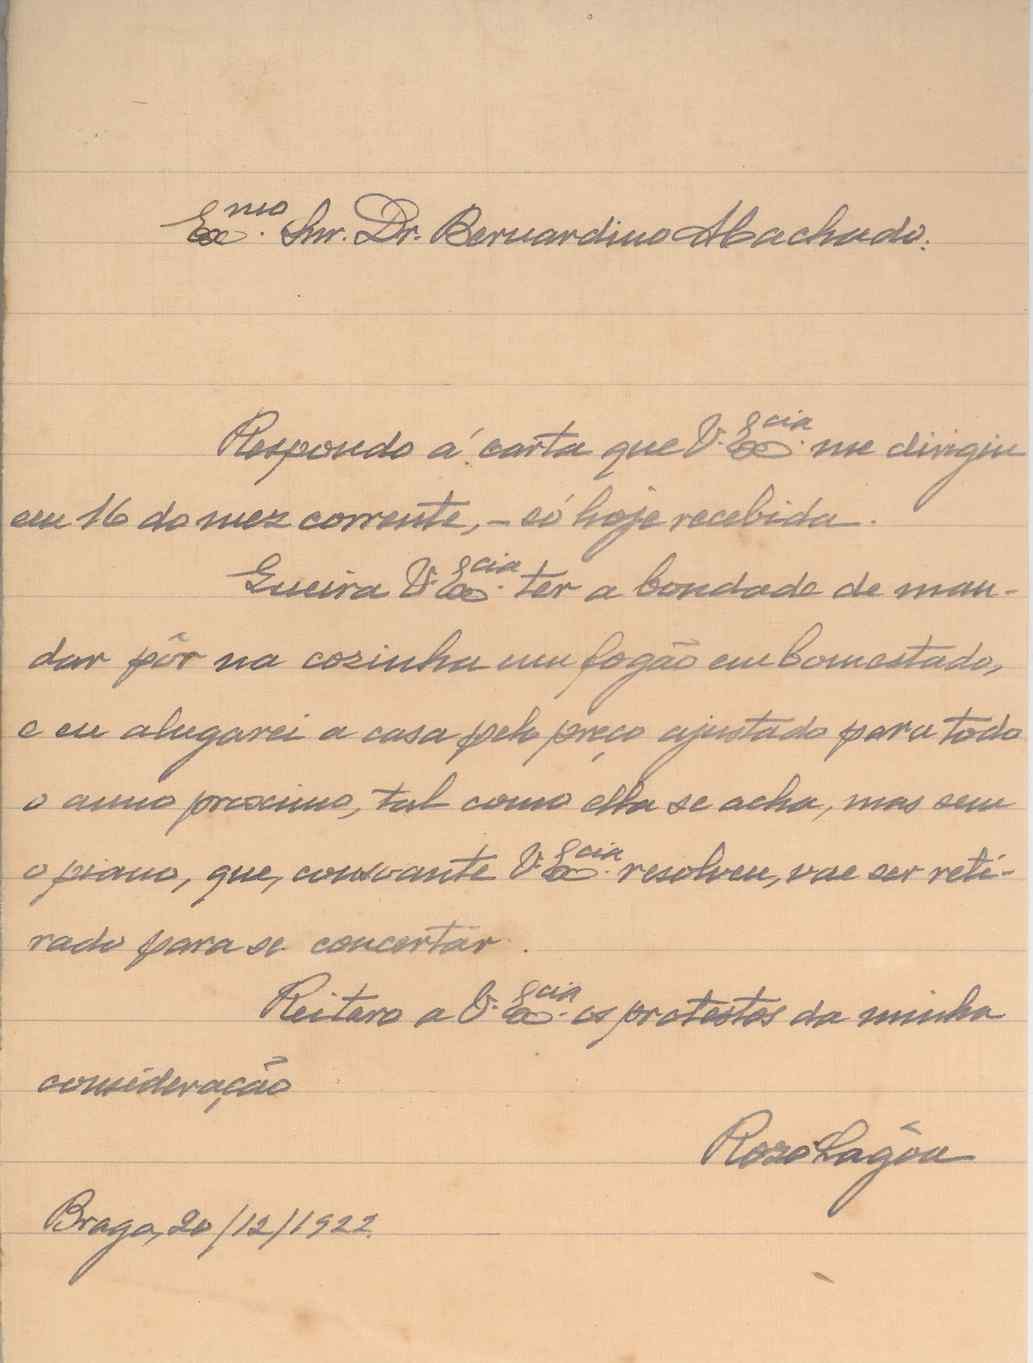 Ex.mo Snr. Dr. Bernardino Machado.
Respondo á carta que V. Ex.cia me dirigiu
em 16 do mez corrente, – só hoje recebida.
Queira V. Ex.cia ter a bondade de man-
dar pôr na cozinha um fogão em bom estado,
e eu alugarei a casa pelo preço ajustado para todo
o anno proximo, tal como ella se acha, mas sem
o piano, que, consoante V. Ex.cia resolveu, vae ser reti-
rado para se concertar.
Reitero a V. Ex.cia os protestos da minha
consideração
Lagôa
Braga, 20/12/1922.